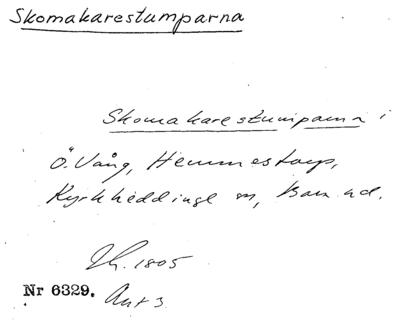 Skomakarestumparna
Skomakarestumparna i
Ö. Vång, Hemmestorp,
Kyrkheddinge sn, Bara hd.
Sk. 1805
Nr 6329. Akt 3